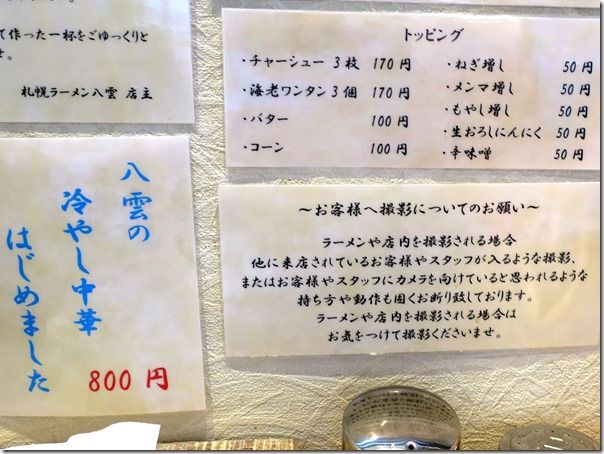 て作った一杯をごゆっくりと
せ。
札幌ラーメン八雲 店主
トッピング
・チャーシュー 3枚 170円
・海老ワンタン 3個 170円
・バター 100円
・コーン 100円
・ねぎ増し 50円
・メンマ増し 50円
・もやし増し 50円
・生おろしにんにく 50円
・辛味噌 50円
八雲の
冷やし中華
はじめました
800円
～お客様へ撮影についてのお願い～
ラーメンや店内を撮影される場合
他に来店されているお客様やスタッフが入るような撮影、
またはお客様やスタッフにカメラを向けていると思われるような
持ち方や動作も固くお断り致しております。
ラーメンや店内を撮影される場合は
お気をつけて撮影くださいませ。